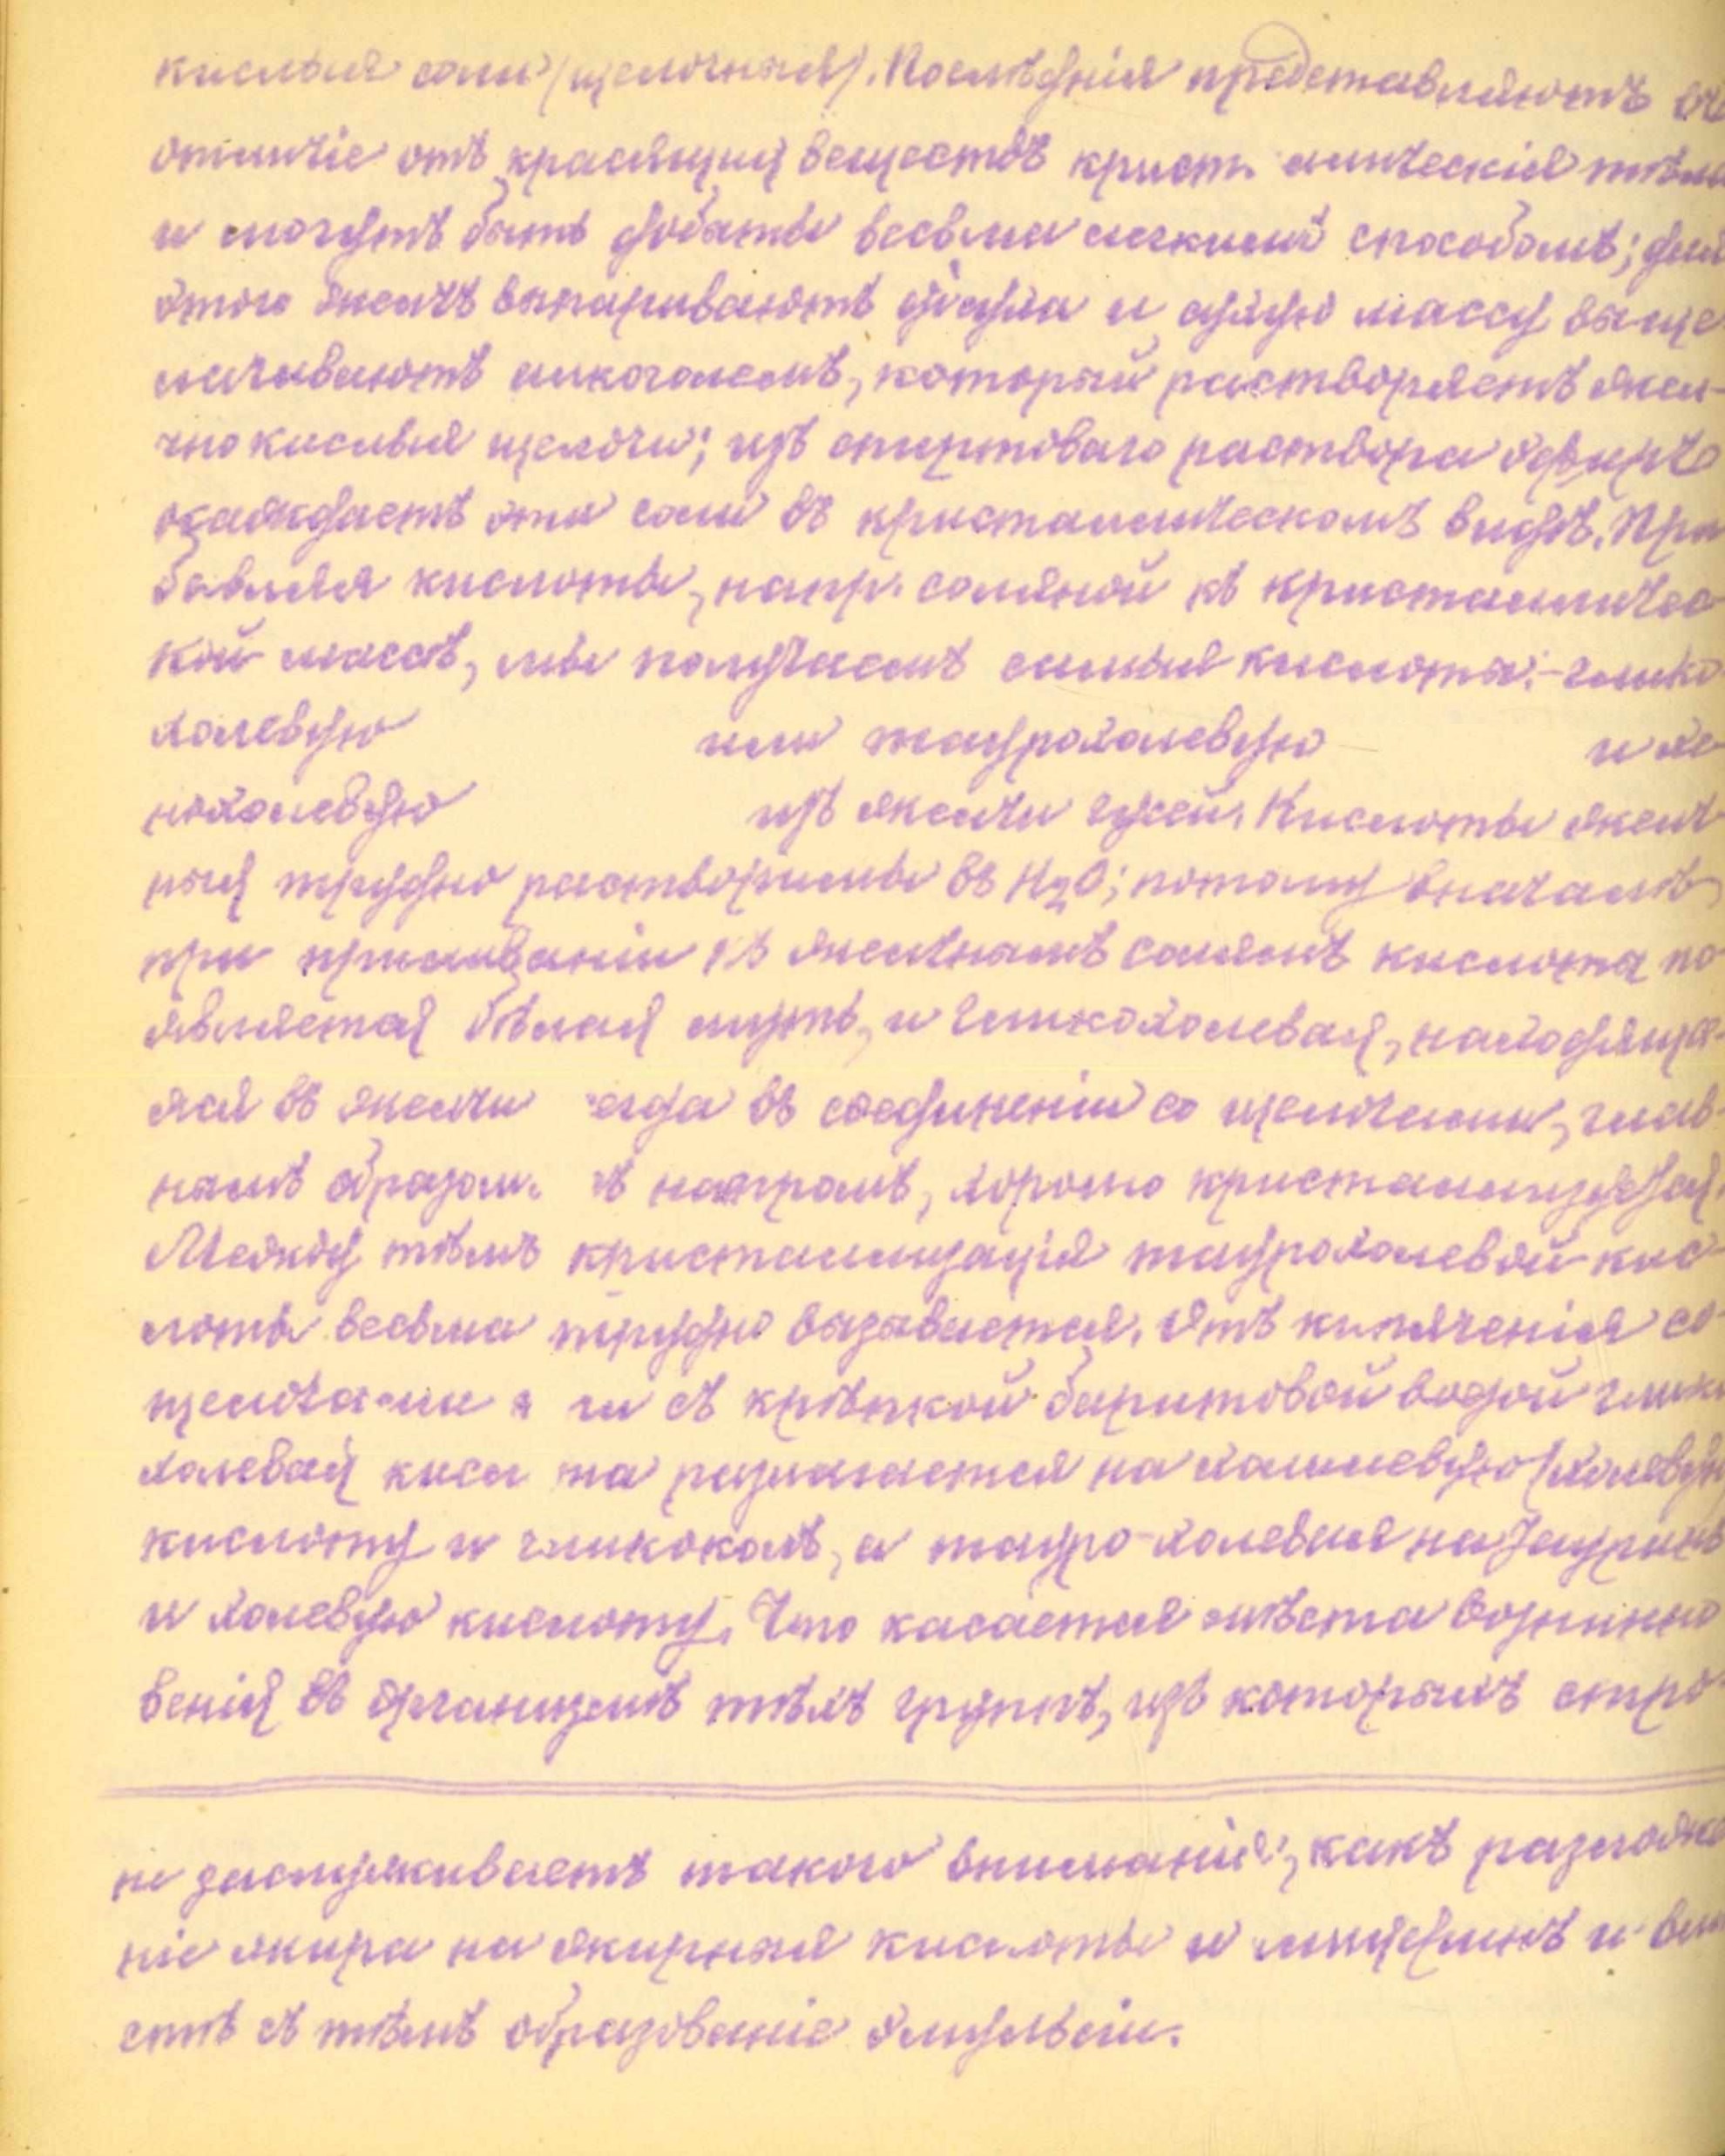 кислыя соли (щелочныя). Послѣднія представляютъ въ
отличіе отъ красящих веществъ крист. лическія тѣла
и могутъ быть добыты весьма легкимъ способомъ; для
этого желчь выпариваютъ досуха и сухую массу выще
лачиваютъ алкоголемъ, который растворяетъ желч-
нокислыя щелочи; изъ спиртоваго раствора эфиръ
осаждаетъ эти соли въ кристаллическомъ видѣ. При
бавляя кислоты, напр. соляной къ кристалличес-
кой массѣ, мы получаемъ самыя кислоты: - глико
холевую или таурохолевую и хе
нохолевую изъ желчи гусей. Кислоты желч
ныя трудно растворимы въ H2O; потому вначалѣ,
при приливаніи къ желчнымъ солямъ кислота по
является бѣлая муть, и гликохолевая, находяща-
яся въ желчи гда въ соединеніи со щелочами, глав-
нымъ образом. ъ натромъ, хорошо кристаллизуется.
Между тѣмъ кристаллизація таурохолевой кис-
лоты весьма трудно вызывается. Отъ кипяченія со
щелоча-ми и ли съ крѣпкой баритовой водой глико
холевая кисл та разлагается на холалевую (холевую
кислоту и гликоколъ, а тауро-холевая на Тауринъ
и холевую кислоту. Что касается мѣста возникно
венія въ организмѣ тѣхъ группъ, изъ которыхъ стро-
не заслуживаетъ такого вниманія, какъ разложе
ніе жира на жирныя кислоты и глицеринъ и вмѣ
стѣ съ тѣмъ образованіе эмульсіи.